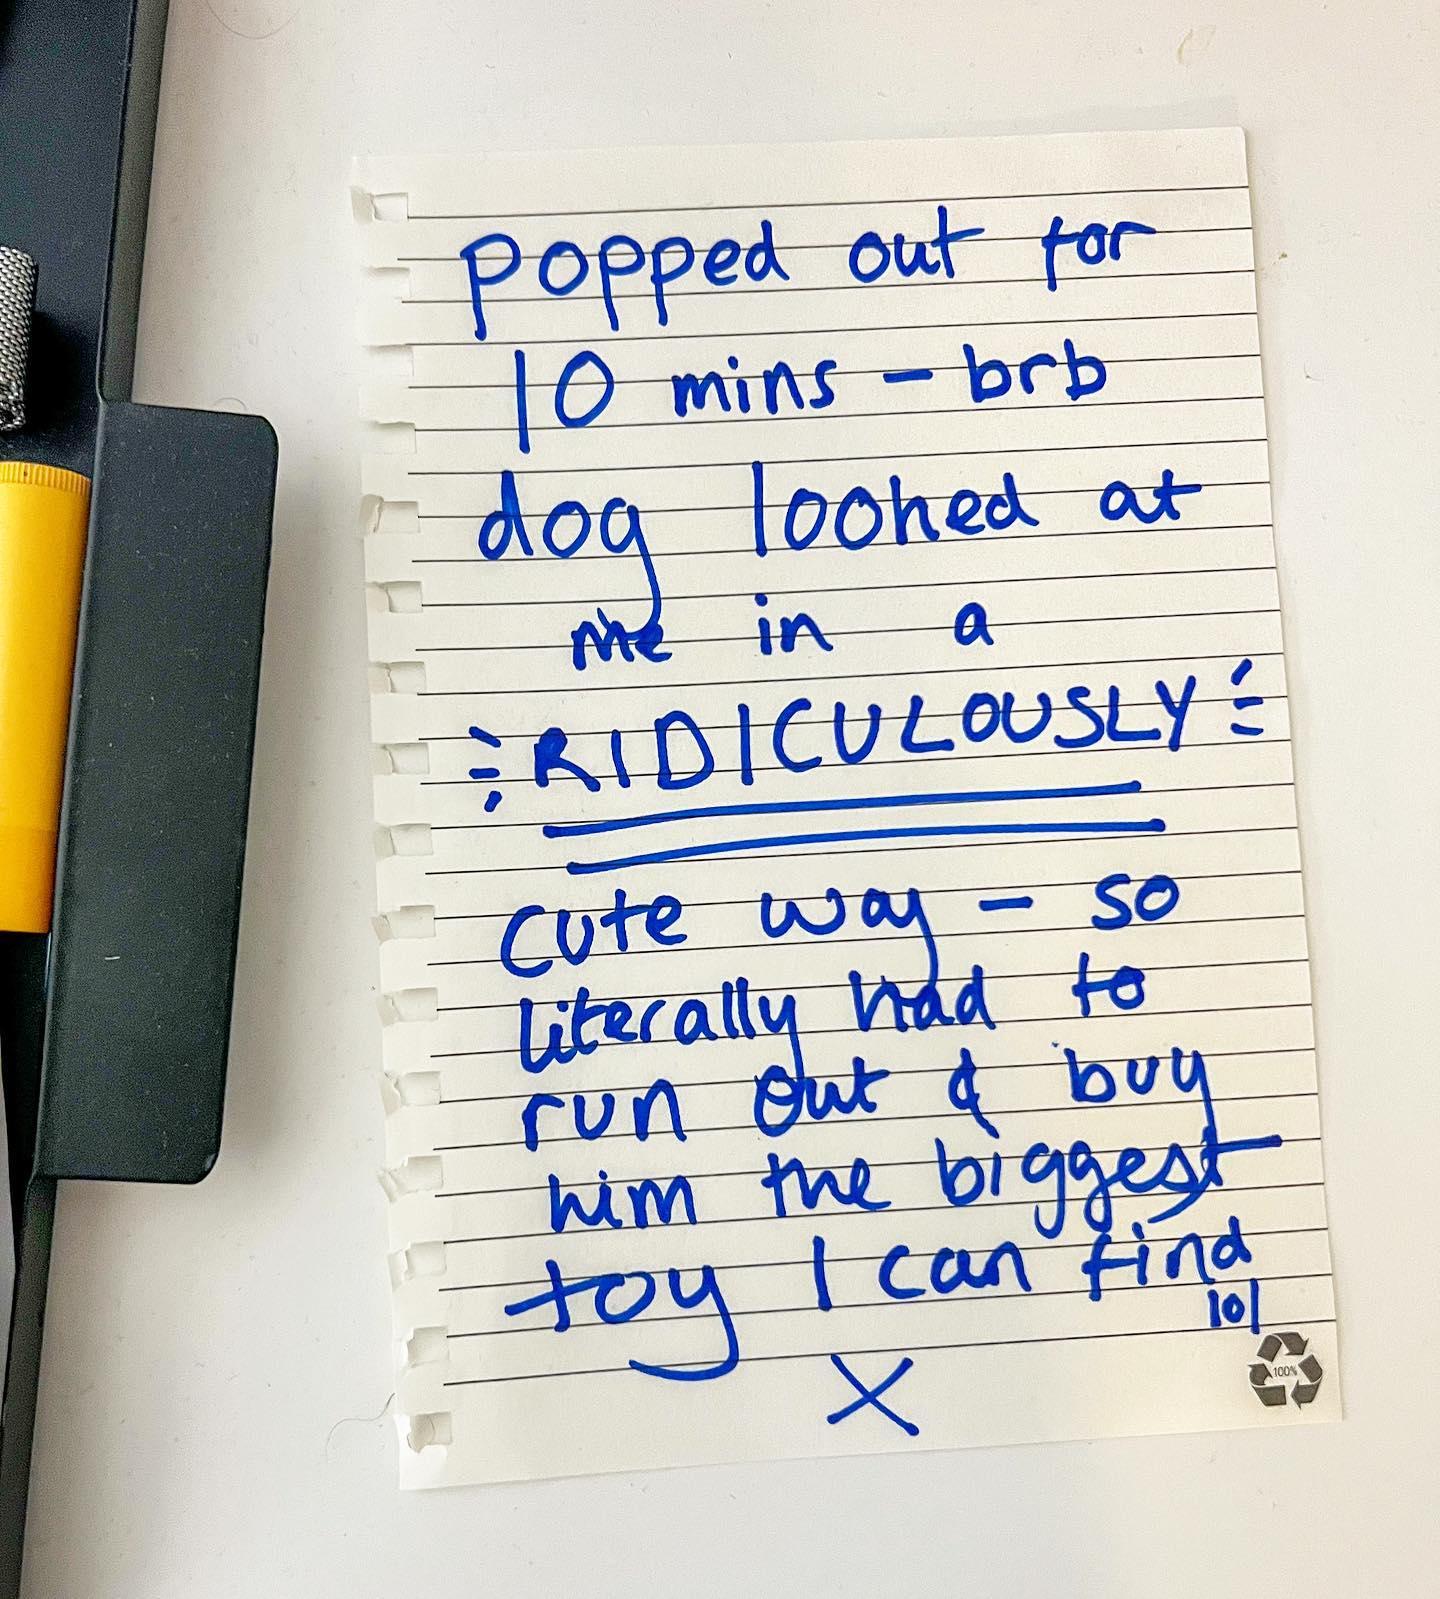 popped out for
10 mins - brb
dog looked at
me in a
RIDICULOUSLY
cute way - so
literally had to
run out & buy
him the biggest
toy I can find
lol
X
100%